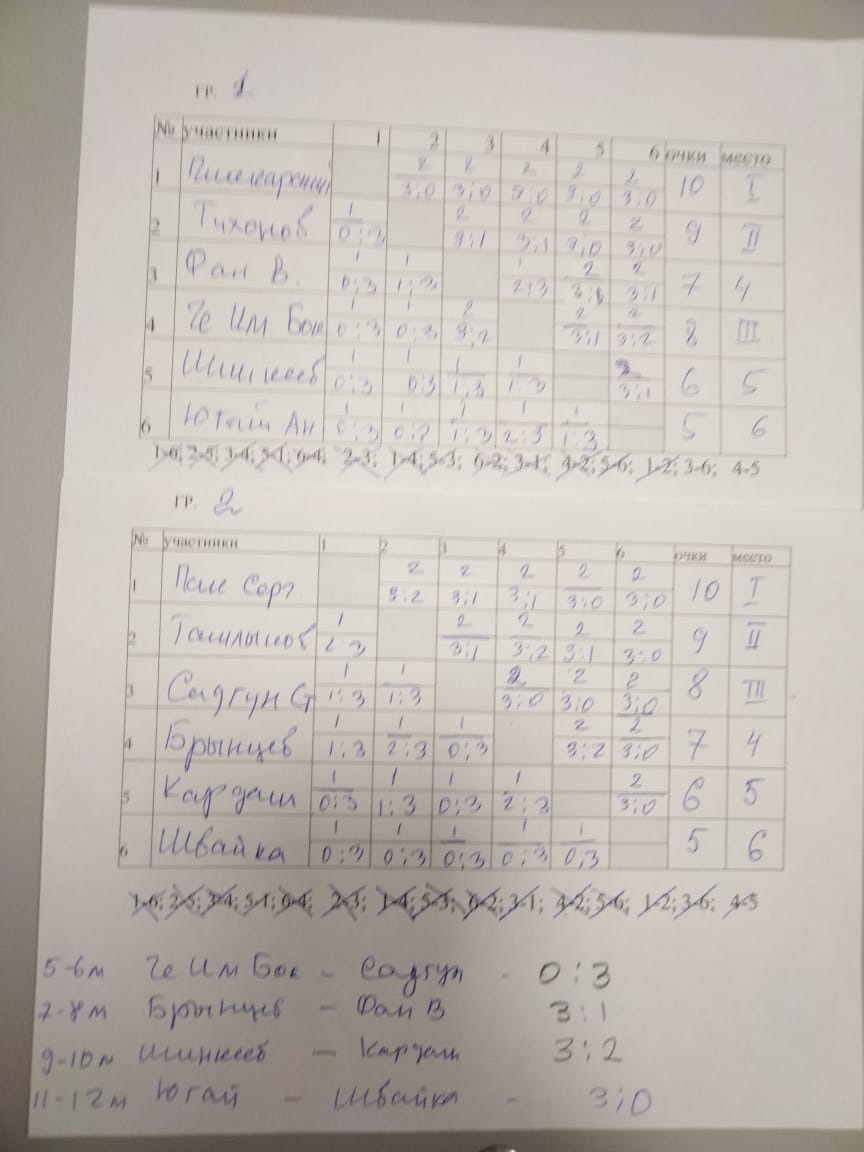 гр. 1
№ участники 1 2 3 4 5 6 очки место
1 2 2 2 2 2 10 I
3:0 3:0 3:0 3:0 3:0
2 Тихонов 1 2 2 2 2 9 II
0:3 3:1 3:1 3:0 3:0
3 Фан В. 1 1 1 2 2 7 4
0:3 1:3 2:3 3:1 3:1
4 Че Им Бок 1 1 2 2 2 8 III
0:3 0:3 3:2 3:1 3:2
5 Шинкеев 1 1 1 1 2 6 5
0:3 0:3 1:3 1:3 3:1
6 Югай Ан 1 1 1 1 1 5 6
0:3 0:3 1:3 2:3 1:3
1-6; 2-5; 3-4; 5-1; 6-4; 2-3; 1-4; 5-3; 6-2; 3-1; 4-2; 5-6; 1-2; 3-6; 4-5
гр. 2
№ участники 1 2 3 4 5 6 очки место
1 Пак Серг. 2 2 2 2 2 10 I
3:2 3:1 3:1 3:0 3:0
2 1 2 2 2 2 9 II
2:3 3:1 3:2 3:1 3:0
3 Садгун Ст 1 1 2 2 2 8 III
1:3 1:3 3:0 3:0 3:0
4 Брынцев 1 1 1 2 2 7 4
1:3 2:3 0:3 3:2 3:0
5 Кардаш 1 1 1 1 2 6 5
0:3 1:3 0:3 2:3 3:0
6 Швайка 1 1 1 1 1 5 6
0:3 0:3 0:3 0:3 0:3
1-6; 2-5; 3-4; 5-1; 6-4; 2-3; 1-4; 5-3; 6-2; 3-1; 4-2; 5-6; 1-2; 3-6; 4-5
5-6м Че Им Бок - Садгун - 0:3
7-8м Брынцев - Фан В 3:1
9-10м Шинкеев - Кардаш 3:2
11-12м Югай - Швайка - 3:0